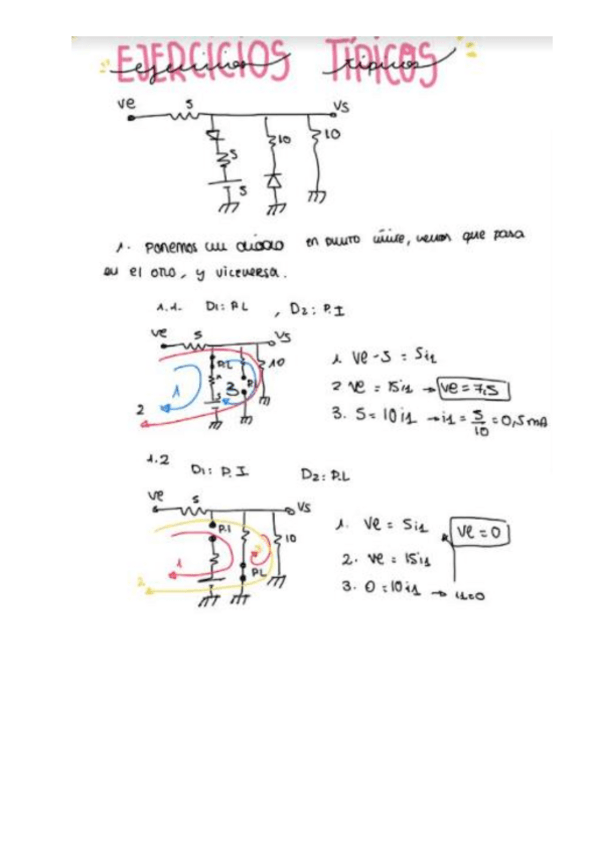 EJERCICIOS TÍPICOS
ejercicios típicos
Ve 5 Vs
5 10 10
5
1. Ponemos un diodo en punto límite, vemos que pasa
en el otro, y viceversa.
1.1. D1: P.L , D2: P.I
Ve 5 Vs
P.L 10
1 3 P.I
2
1 Ve-5 = 5i1
2 Ve = 15i1 → Ve = 7,5
3. 5 = 10i1 → i1 = 5/10 = 0,5mA
1.2 D1: P.I D2: P.L
Ve 5 Vs
P.I 10
1
2 P.L
1. Ve = 5i1 Ve = 0
2. Ve = 15i1
3. 0 = 10i1 → i1=0